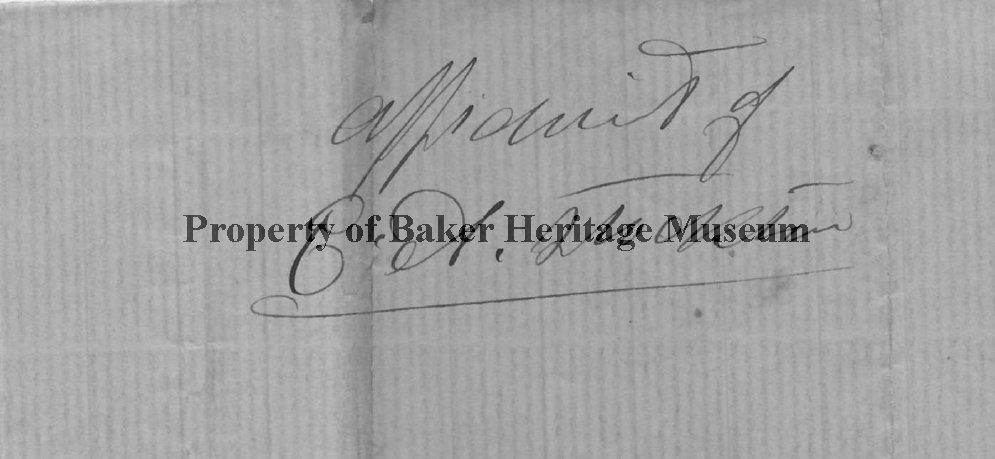 affidavit of
Property of Baker Heritage Museum
E. A.